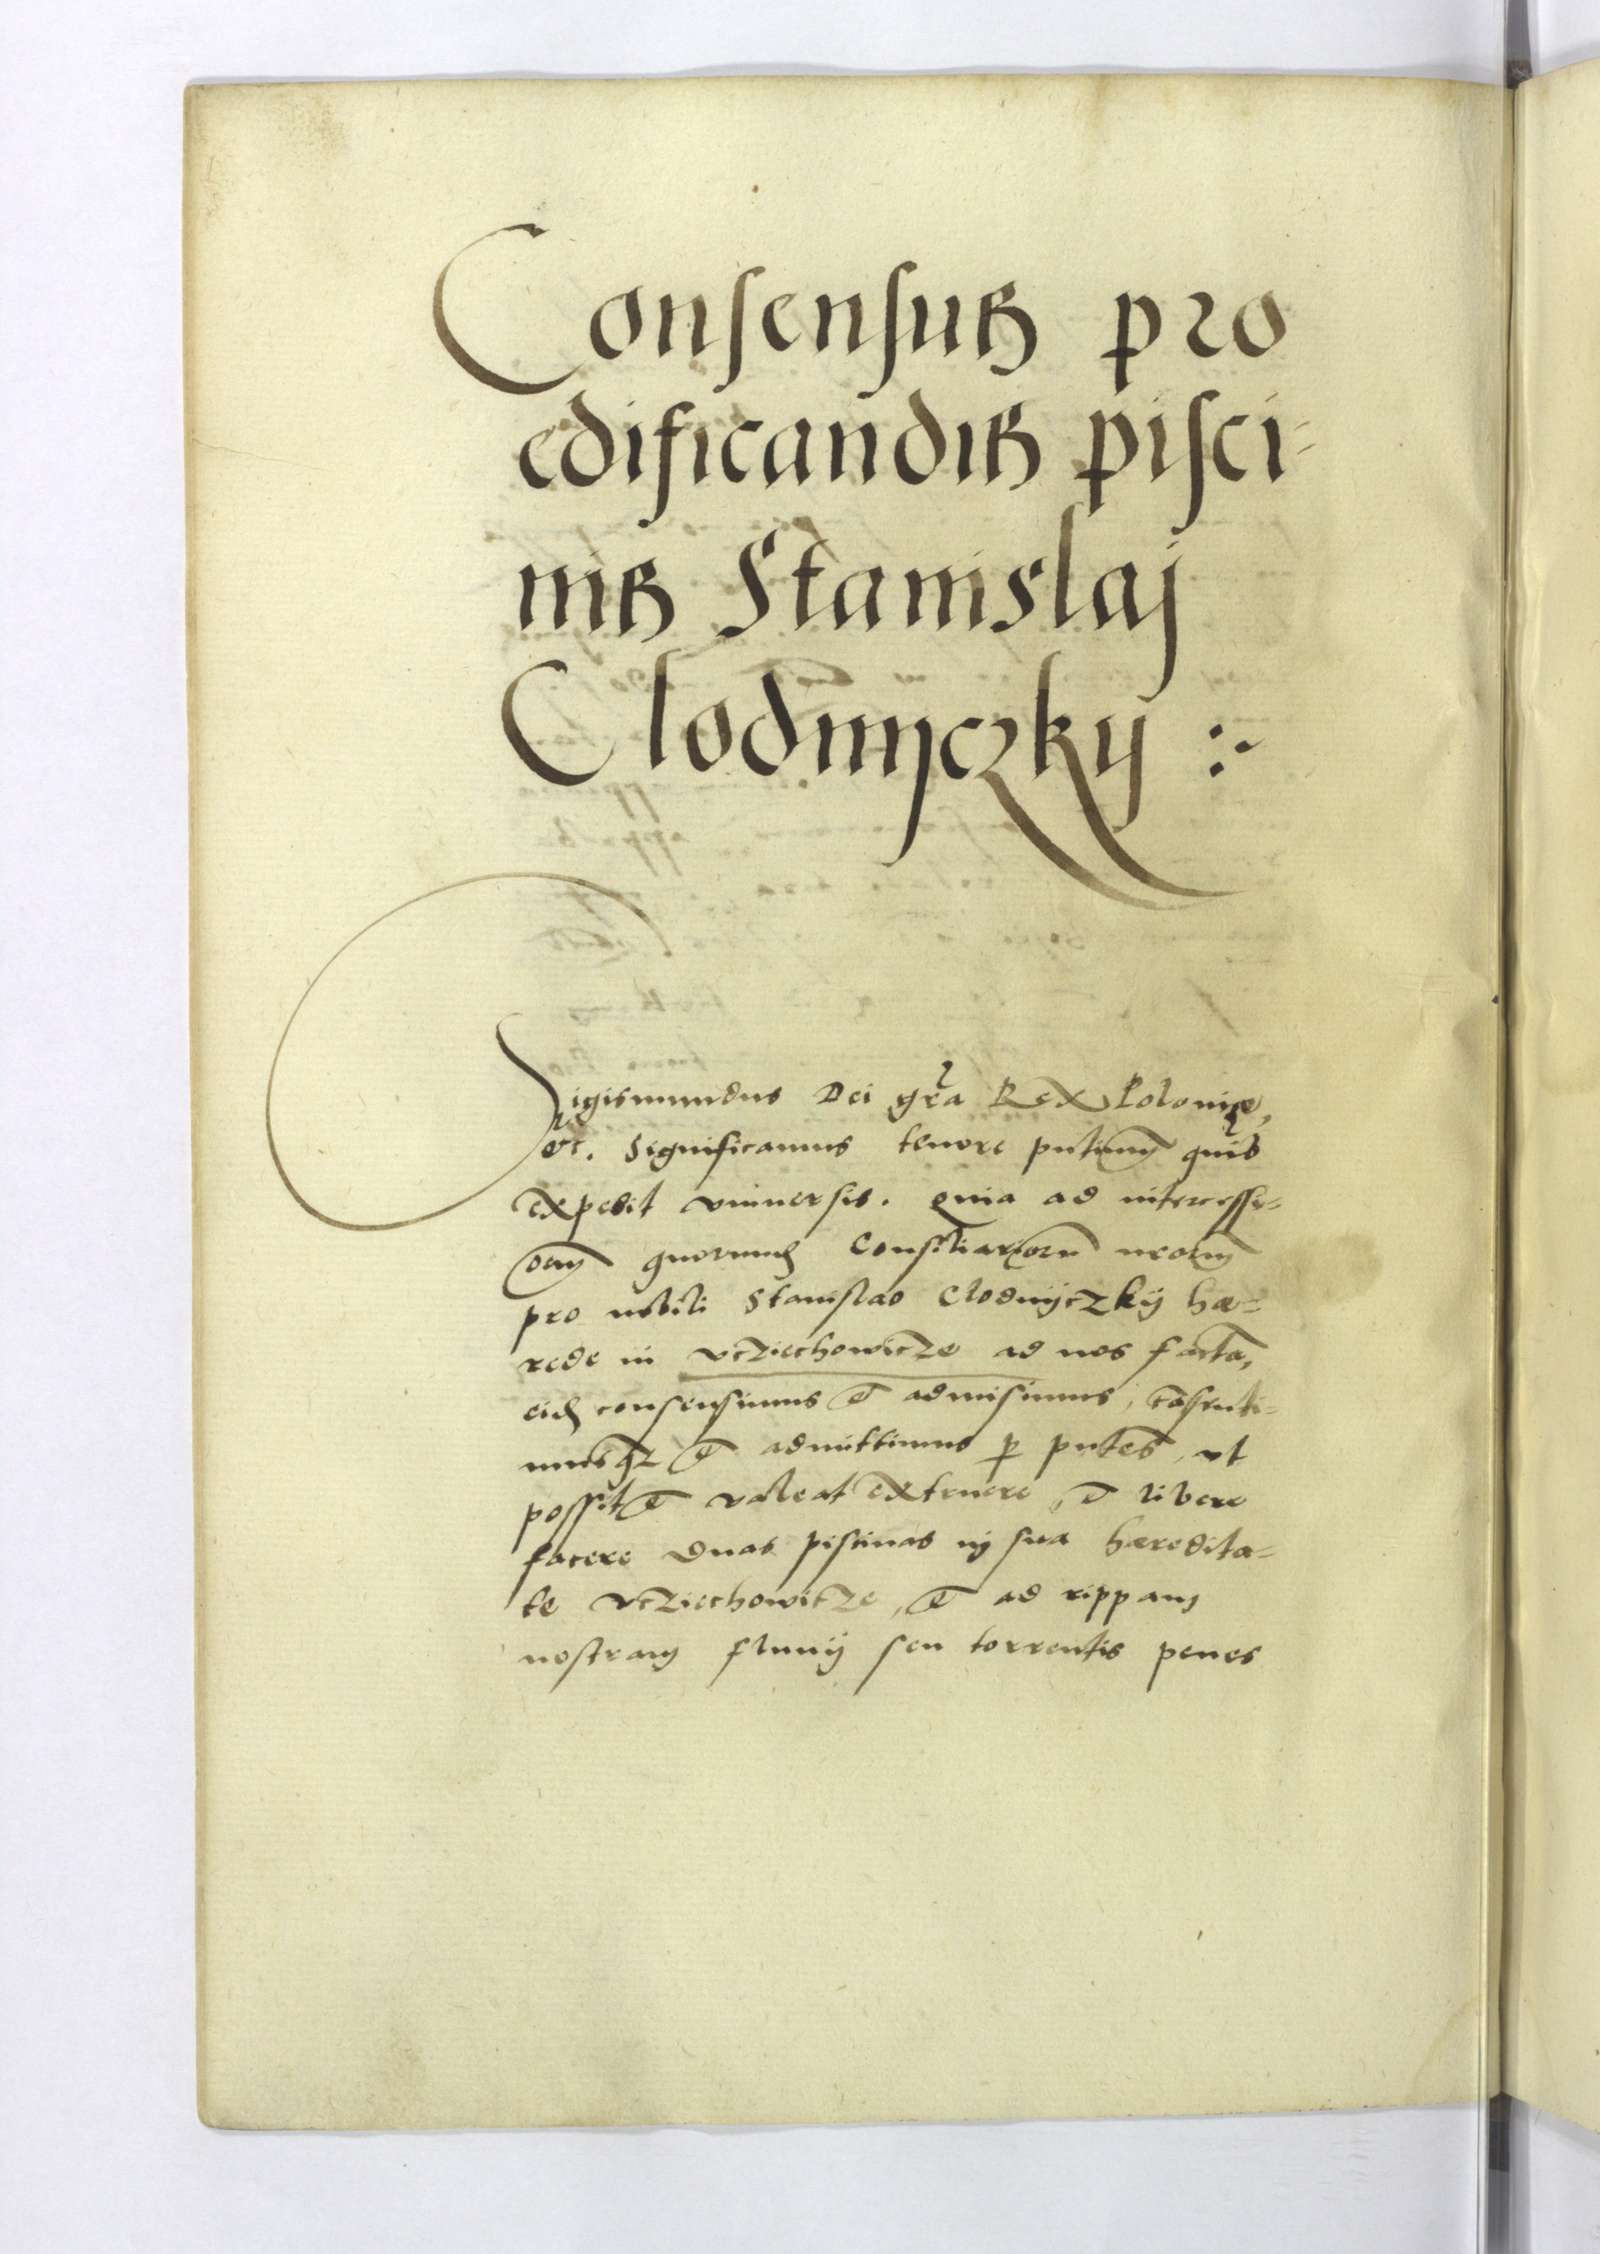 Consensus pro
edificandis pisci-
nis Stanislaj
Clodnyczky :~
Sigismundus Dei gra Rex Poloniæ,
etc. Significamus tenore pntium quib
expedit vniuersis. Quia ad intercessi-
onem quorund Consiliariorum nrorum
pro nobili Stanislao Clodnyczky hæ-
rede in Vcziechowicze ad nos facta,
eid consensimus et admisimus, consenti-
musqz et admittimus p pntes, vt
possit et valeat extruere, et libere
facere duas piscinas in sua hæredita-
te Vcziechowicze, et ad rippam
nostram fluuij seu torrentis penes